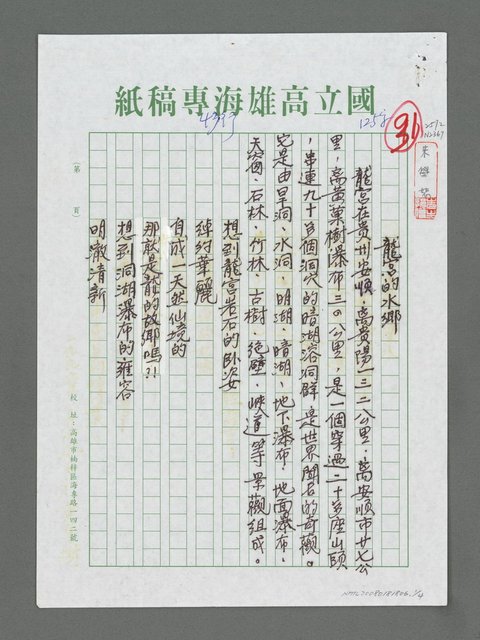 國立高雄海專稿紙
31
龍宮的水鄉
龍宮在貴州安順，离貴陽一三二公里，离安順市廿七公
里，离黃菓樹瀑布三0公里，是一個穿過二十多座山頭
，串連九十多個洞穴的暗湖溶洞群，是世界聞名的奇觀。
它是由旱洞、水洞、明湖、暗湖、地下瀑布、地面瀑布、
天窗、石林、竹林、古樹、絕壁、峽道等景觀組成。
想到龍宮岩石的卧姿
綽約華麗
自成一天然仙境的
那就是爺的故鄉嗎？！
想到洞湖瀑布的雍容
明澈清新
（第 頁）
校址：高雄市楠梓區海專路一四二號